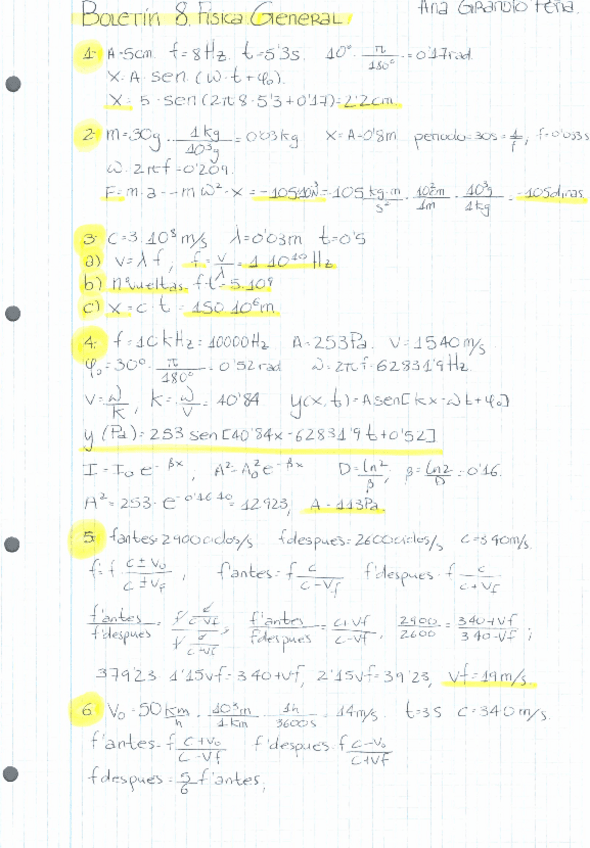 Boletín 8. Física General
1. A=5cm f=8Hz t=5'3s 10° · π/180° = 0'17rad
X=A·sen (ω·t+φ₀)
X = 5 · sen(2π8·5'3+0'17)=2'2cm
2. m=30g · 1kg/10³g =0'03kg X=A=0'8m periodo=30s=1/f, f=0'033s
ω=2πf=0'209.
3. C=3·10⁸m/s λ=0'03m t=0's
a) v=λf; f=v/λ=1·10¹⁰Hz
b) nºvueltas=f·t=5·10⁹
c) x=c·t=150·10⁶m
4. f=10kHz=10000Hz A=253Pa. V=1540m/s
φ₀=30°·π/180°=0'52rad ω=2πf=62831'9Hz.
V=ω/k, k=ω/v=40'84 y(x,t)=Asen[kx-ωt+φ₀]
y(Pa)=253 sen[40'84x-62831'9t+0'52]
I=I₀e^-βx; A²=A₀²e^-βx D=ln2/β; β=ln2/D=0'16.
A²=253·e^-0'16·10=12923, A=113Pa.
5. fantes=2900ciclos/s fdespues=2600ciclos/s c=340m/s.
f'=f c±v₀/c±vf, f'antes=f c/c-vf f'despues=f c/c+vf
f'antes/f'despues = f c/c-vf / f c/c+vf; f'antes/f'despues=c+vf/c-vf, 2900/2600=340+vf/340-vf;
379'23 1'15vf=340+vf, 2'15vf=39'23, vf=19m/s.
6. V₀=50 km/h · 10³m/1km · 1h/3600s =14m/s. t=3s c=340m/s.
f'antes=f c+v₀/c-vf f'despues=f c-v₀/c+vf
fdespues=5/6 f'antes,